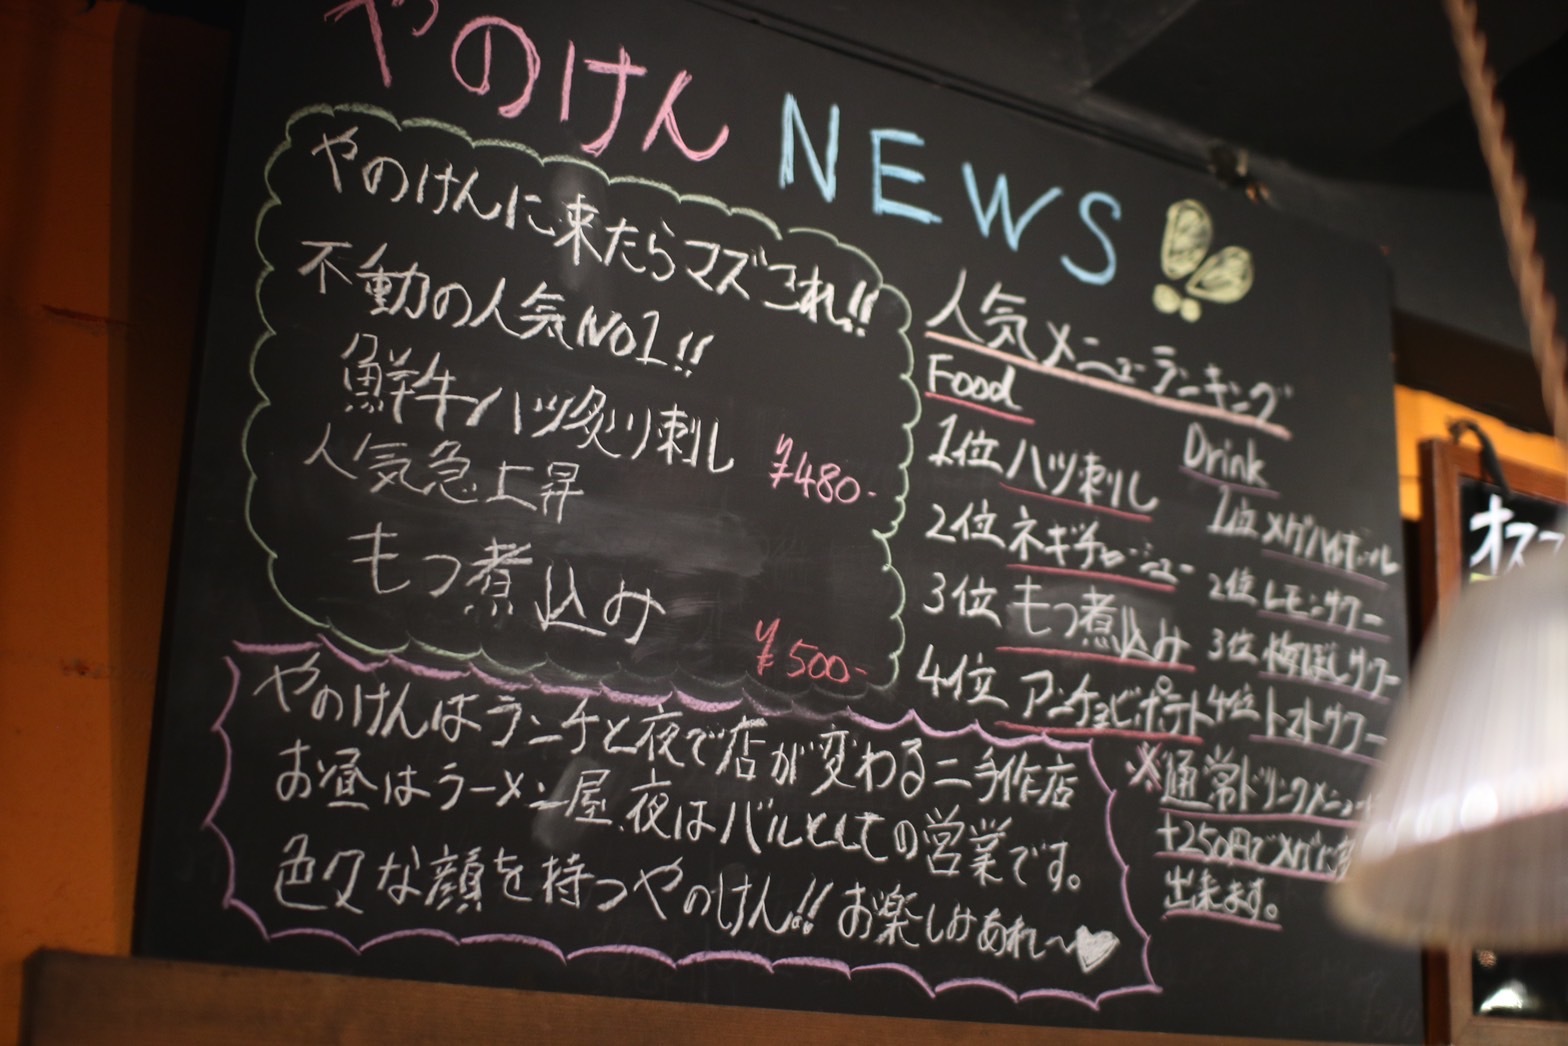 やのけん NEWS
やのけんに来たらマズこれ!!
不動の人気NO1!!
鮮牛ハツ炙り刺し ¥480-
人気急上昇
もつ煮込み ¥500-
人気メニューランキング
Food
1位 ハツ刺し
2位 ネギチャーシュー
3位 もつ煮込み
4位 アンチョビポテト
Drink
1位 メガハイボール
2位 レモンサワー
3位 梅ぼしサワー
4位 トマトサワー
※通常ドリンクメニュー
+250円でメガに
出来ます。
やのけんはランチと夜で店が変わる二毛作店
お昼はラーメン屋、夜はバルとしての営業です。
色々な顔を持つやのけん!!お楽しみあれ〜♥
オス